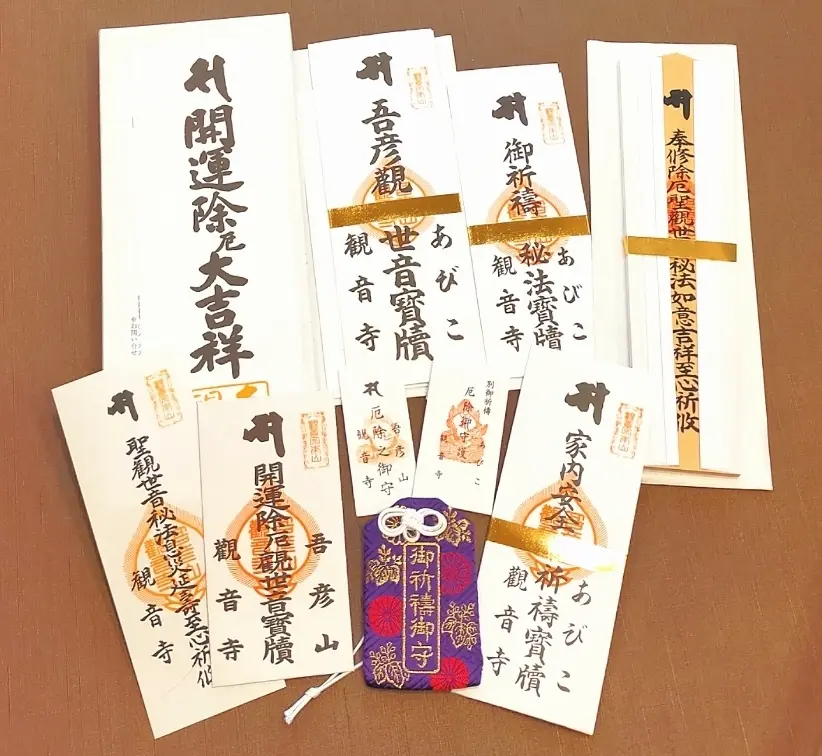 開運除厄大吉祥
お問い合せ
吾彦觀世音寳牘
あびこ
観音寺
御祈禱秘法寳牘
あびこ
観音寺
奉修除厄聖觀世音秘法如意吉祥至心祈攸
聖觀世音秘法息災延命
至心祈攸
観音寺
開運除厄觀世音寳牘
吾彦山
觀音寺
厄除之御守
吾彦山
観音寺
別御祈禱
厄除御守護
あびこ
観音寺
家内安全祈禱寳牘
あびこ
觀音寺
御祈禱御守